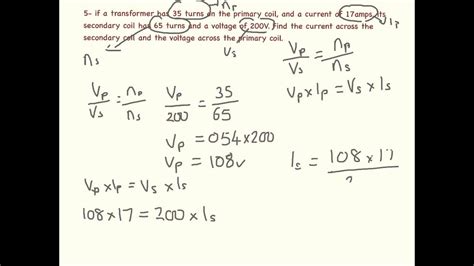 5- if a transformer has 35 turns on the primary coil, and a current of 17amps. Its
secondary coil has 65 turns and a voltage of 200V. Find the current across the
secondary coil and the voltage across the primary coil.
np
ns
Vs
Vp/Vs = np/ns
Vp/200 = 35/65
Vp = 054×200
Vp = 108v
Vp×Ip = Vs×Is
108×17 = 200×Is
Vp/Vs = np/ns
Vp×Ip = Vs×Is
Is = 108×17